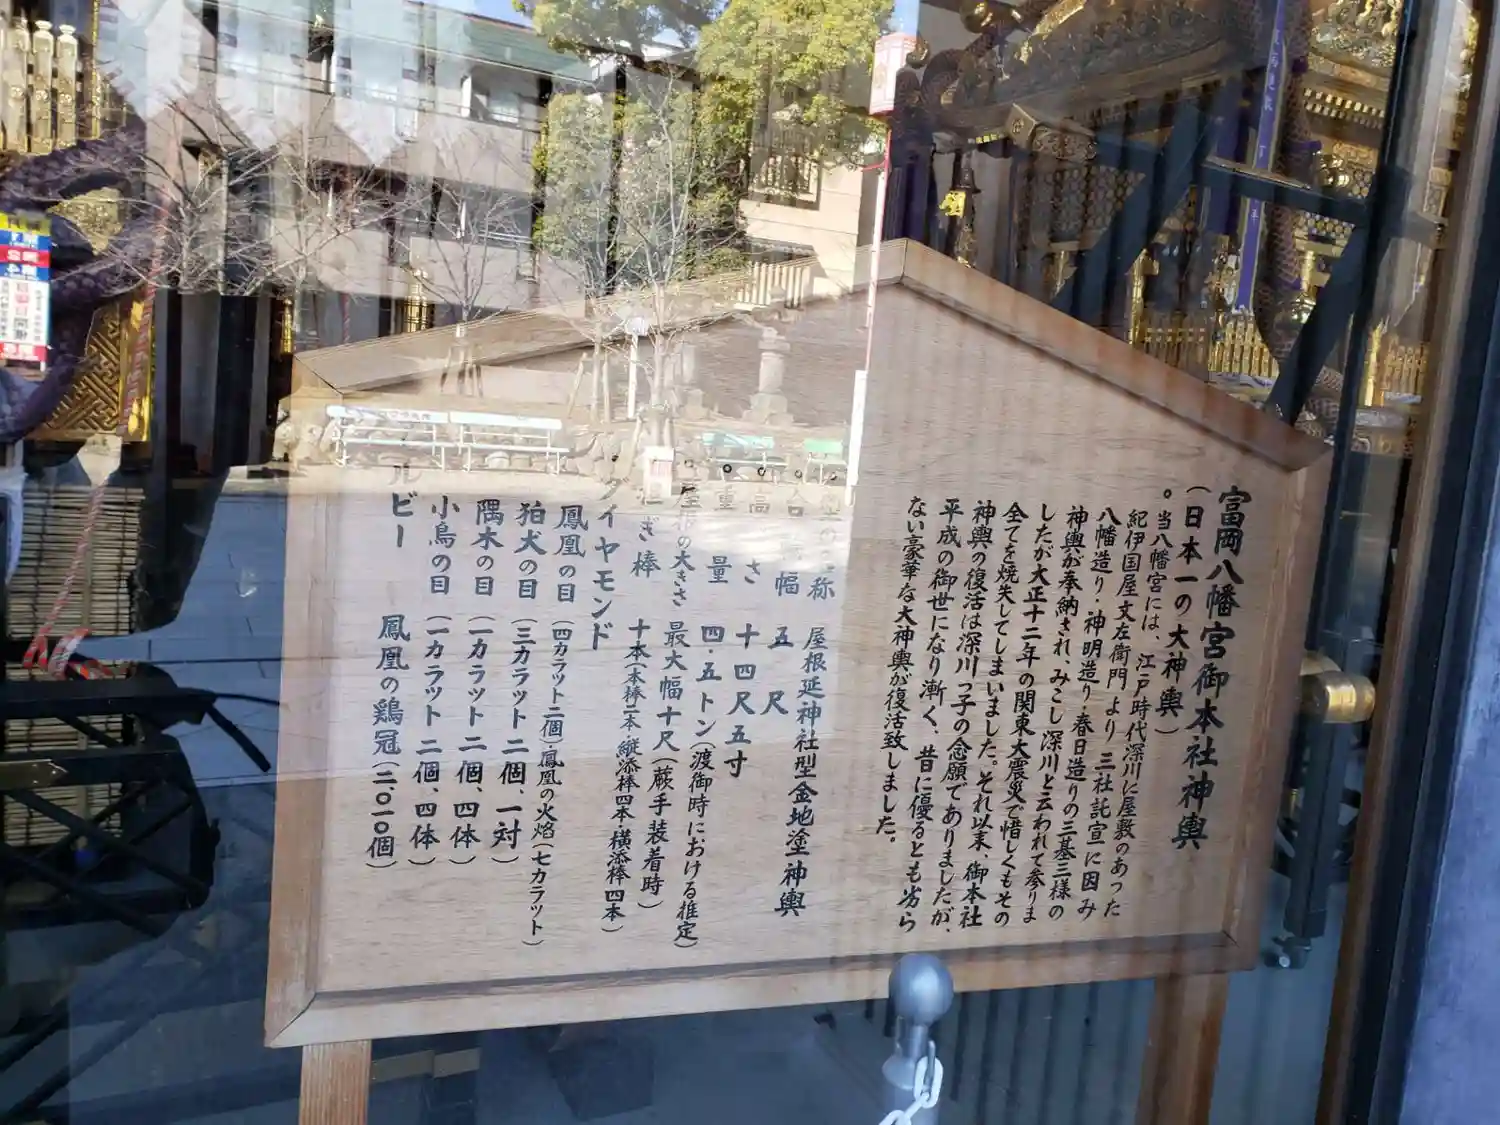 富岡八幡宮御本社神輿
(日本一の大神輿)
。当八幡宮には、江戸時代深川に屋敷のあった
紀伊国屋文左衛門より三社託宣に因み
八幡造り・神明造り・春日造りの三基三様の
神輿が奉納され、みこし深川と云われて参りま
したが大正十二年の関東大震災で惜しくもその
全てを焼失してしまいました。それ以来、御本社
神輿の復活は深川っ子の念願でありましたが、
平成の御世になり漸く、昔に優るとも劣ら
ない豪華な大神輿が復活致しました。
称 屋根延神社型金地塗神輿
幅 五尺
高さ 十四尺五寸
重量 四・五トン(渡御時における推定)
屋根の大きさ 最大幅十尺(蕨手装着時)
ぎ棒 十本(本棒二本・縦添棒四本・横添棒四本)
イヤモンド
鳳凰の目 (四カラット二個)・鳳凰の火焰(七カラット)
狛犬の目 (三カラット二個、一対)
隅木の目 (一カラット二個、四体)
小鳥の目 (一カラット二個、四体)
ルビー 鳳凰の鶏冠(二、〇一〇個)